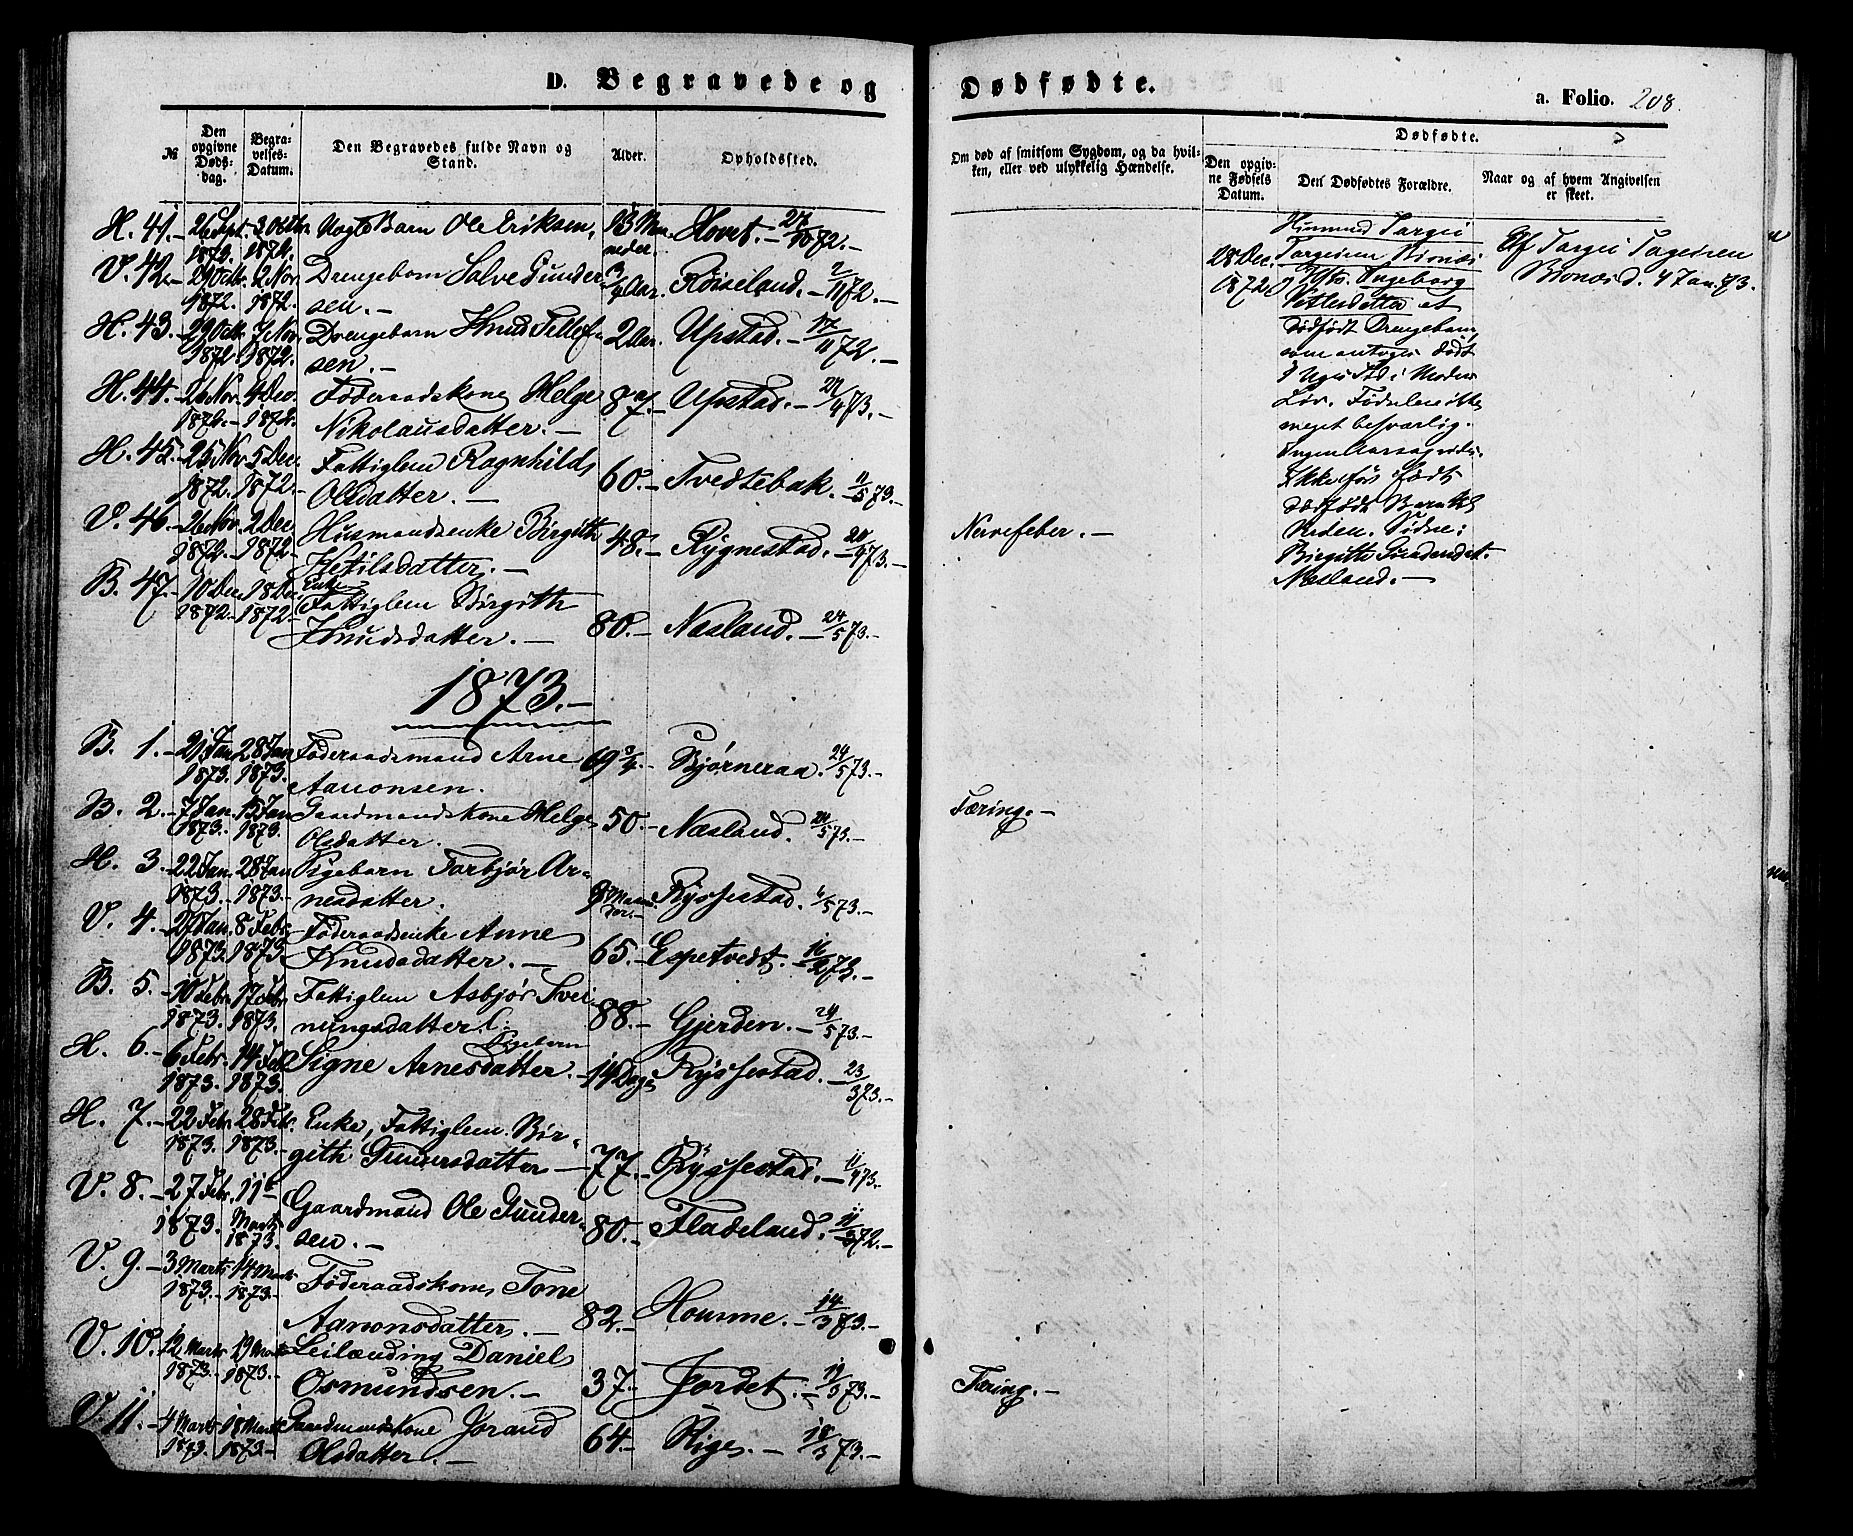 D. Begravede og
Dødfødte.
a. Folio. 208.
№ Den opgivne Døds-dag. Begra-velses-Datum. Den Begravedes fulde Navn og Stand. Alder. Opholdssted.
Om død af smitsom Sygdom, og da hvil-ken, eller ved ulykkelig Hændelse.
Dødfødte.
Den opgiv-ne Fødsels Datum. Den Dødfødtes Forældre. Naar og af hvem Angivelsen er skeet.
H. 41. 26 Sept. 3 Octbr. Barn Ole Eriksen, 13 Maa- Hovet. 27/10 72.
1872. 1872. neder.
V. 42. 29 Octb. 2 Nov. Drengebarn Salve Gunder 3/4 Aar. Røiseland. 2/11 72.
1872. 1872. sen.
H. 43. 29 Octb. 7 Nov. Drengebarn Knud Tellef 2 Aar. Upstad. 17/11 72.
1872. 1872. sen.
H. 44. 26 Nov. 4 Dec. Føderaadskone Helge 87. Upstad. 27/4 73.
1872. 1872. Nikolausdatter.
H. 45. 25 Nov. 5 Dec. Fattiglem Ragnhild 60. Tvedtebak. 11/5 73.
1872. 1872. Olsdatter.
V. 46. 26 Nov. 2 Dec. Husmandsenke Birgith 48. Rygnestad. 20/4 73. Nervefeber.
1872. 1872. Ketilsdatter.
B. 47. 10 Dec. 18 De. Enke
1872. 1872. Fattiglem Birgith
Knudsdatter. 80. Næsland. 24/5 73.
28 Dec.
1872
Husmand Targei
Targeisen
Ingeborg
et
dødfødt Drengebarn,
som antages dødt
i Moders
Liv. Fødselen ikke
meget besværlig.
Ikke før født
dødfødt Barn
Birgith Gundersdat.
Næsland.
Af Targei Targeisen
d. 4 Jan. 73.
1873.
B. 1. 21 Jan. 28 Jan Føderaadsmand Arne 69 3/4. Bjørneraa. 24/5 73.
1873. 1873. Aanonsen.
B. 2. 7 Jan. 15 Jan Gaardmandskone Helge 50. Næsland. 24/5 73. Tæring.
1873. 1873. Olsdatter.
H. 3. 22 Jan. 28 Jan Pigebarn Torbjør Ar-
1873. 1873. nesdatter. 9 Maane-der. Ryssestad. 6/5 73.
V. 4. 27 Jan. 8 Febr. Føderaadsenke Anne
1873. 1873 Knudsdatter. 65. Espetvedt. 16/2 73.
B. 5. 10 Febr. 17 Febr Fattiglem Asbjør Svei-
1873. 1873. nungsdatter. 88. Gjerden. 24/5 73.
H. 6. 6 Febr. 14 Feb Pigebarn
1873. 1873. Signe Arnesdatter. 14 Dage Ryssestad. 23/3 73.
H. 7. 22 Febr. 28 Feb. Enke, Fattiglem Bir-
1873. 1873. gith Gunnersdatter 77. Ryssestad. 11/4 73.
V. 8. 27 Febr. 11 Gaardmand Ole Gunder-
1873. Marts 1873. sen. 80. Fladeland. 11/3 72.
V. 9. 3 Marts 14 Marts Føderaadskone Tone
1873. 1873. Aanonsdatter. 82. Homme. 14/3 73.
V. 10. 12 Marts 19 Marts Leilænding Daniel
1873. 1873. Osmundsen. 37. Jordet. 19/3 73. Tæring.
V. 11. 4 Marts 18 Marts Gaardmandskone Jorand
1873. 1873. Olsdatter. 64. Rige. 18/3 73.